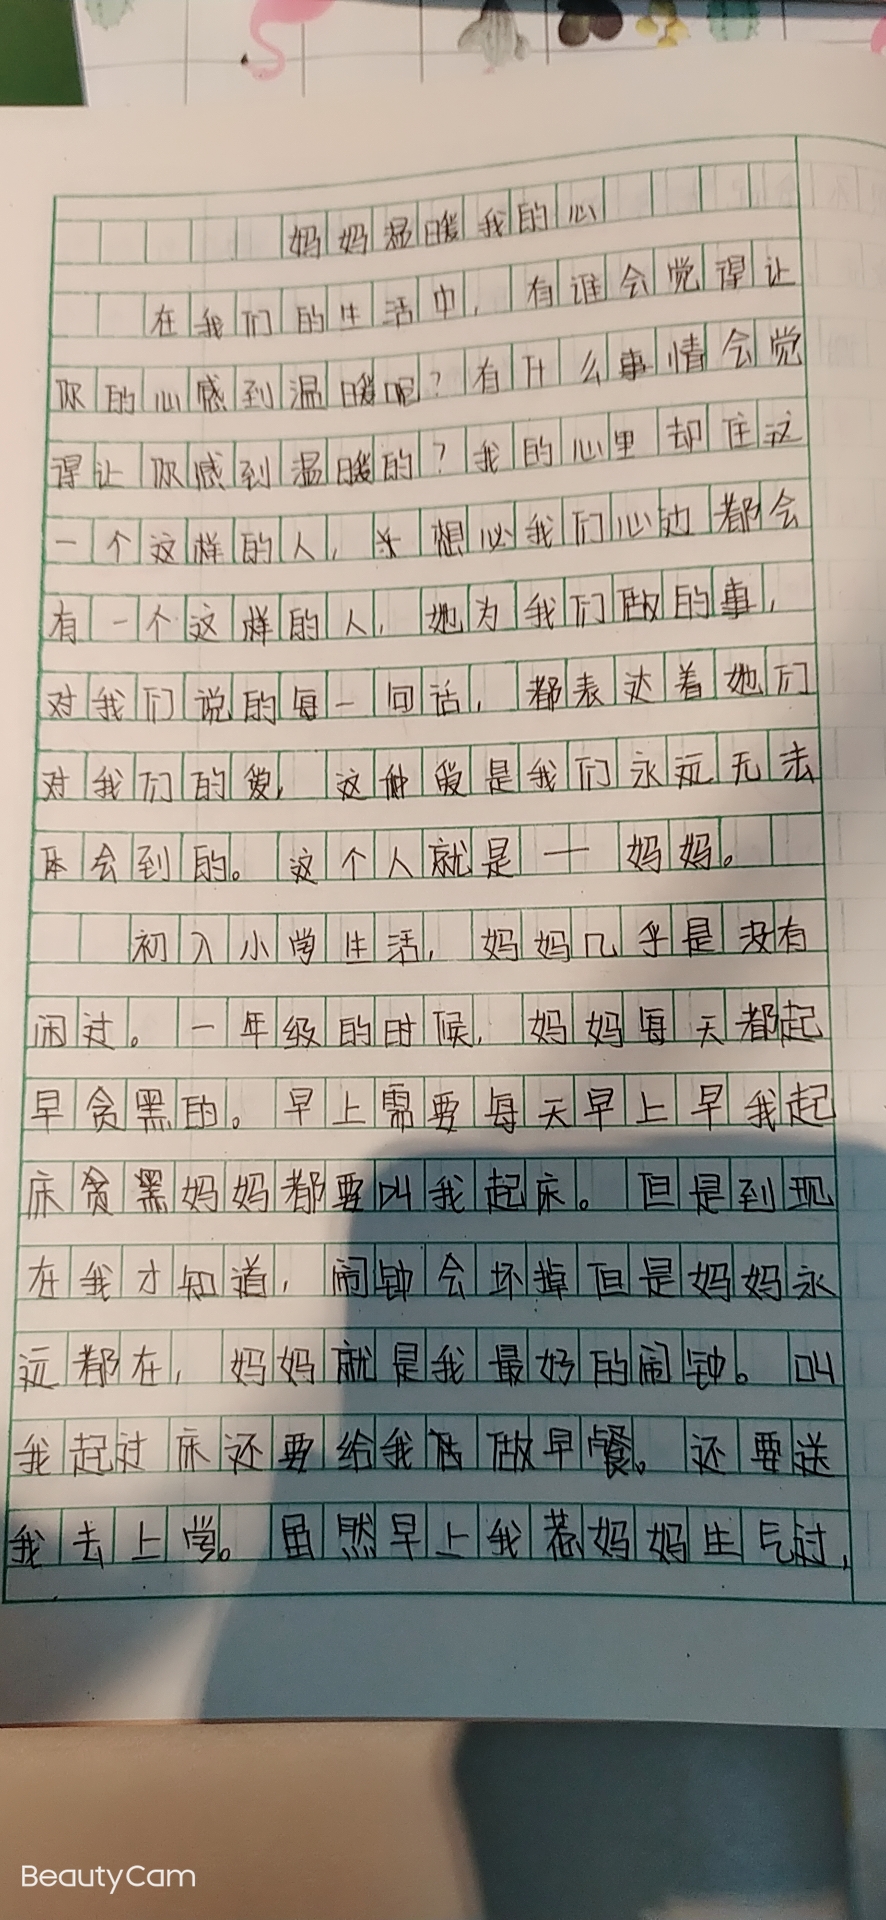 妈妈温暖我的心
在我们的生活中，有谁会觉得让
你的心感到温暖呢？有什么事情会觉
得让你感到温暖的？我的心里却住这
一个这样的人，想必我们心边都会
有一个这样的人，她为我们做的事，
对我们说的每一句话，都表达着她们
对我们的爱，这种爱是我们永远无法
体会到的。这个人就是——妈妈。
初入小学生活，妈妈几乎是没有
闲过。一年级的时候，妈妈每天都起
早贪黑的。早上需要每天早上早我起
床贪黑妈妈都要叫我起床。但是到现
在我才知道，闹钟会坏掉但是妈妈永
远都在，妈妈就是我最好的闹钟。叫
我起过床还要给我做早餐。还要送
我去上学。虽然早上我惹妈妈生气过，
BeautyCam